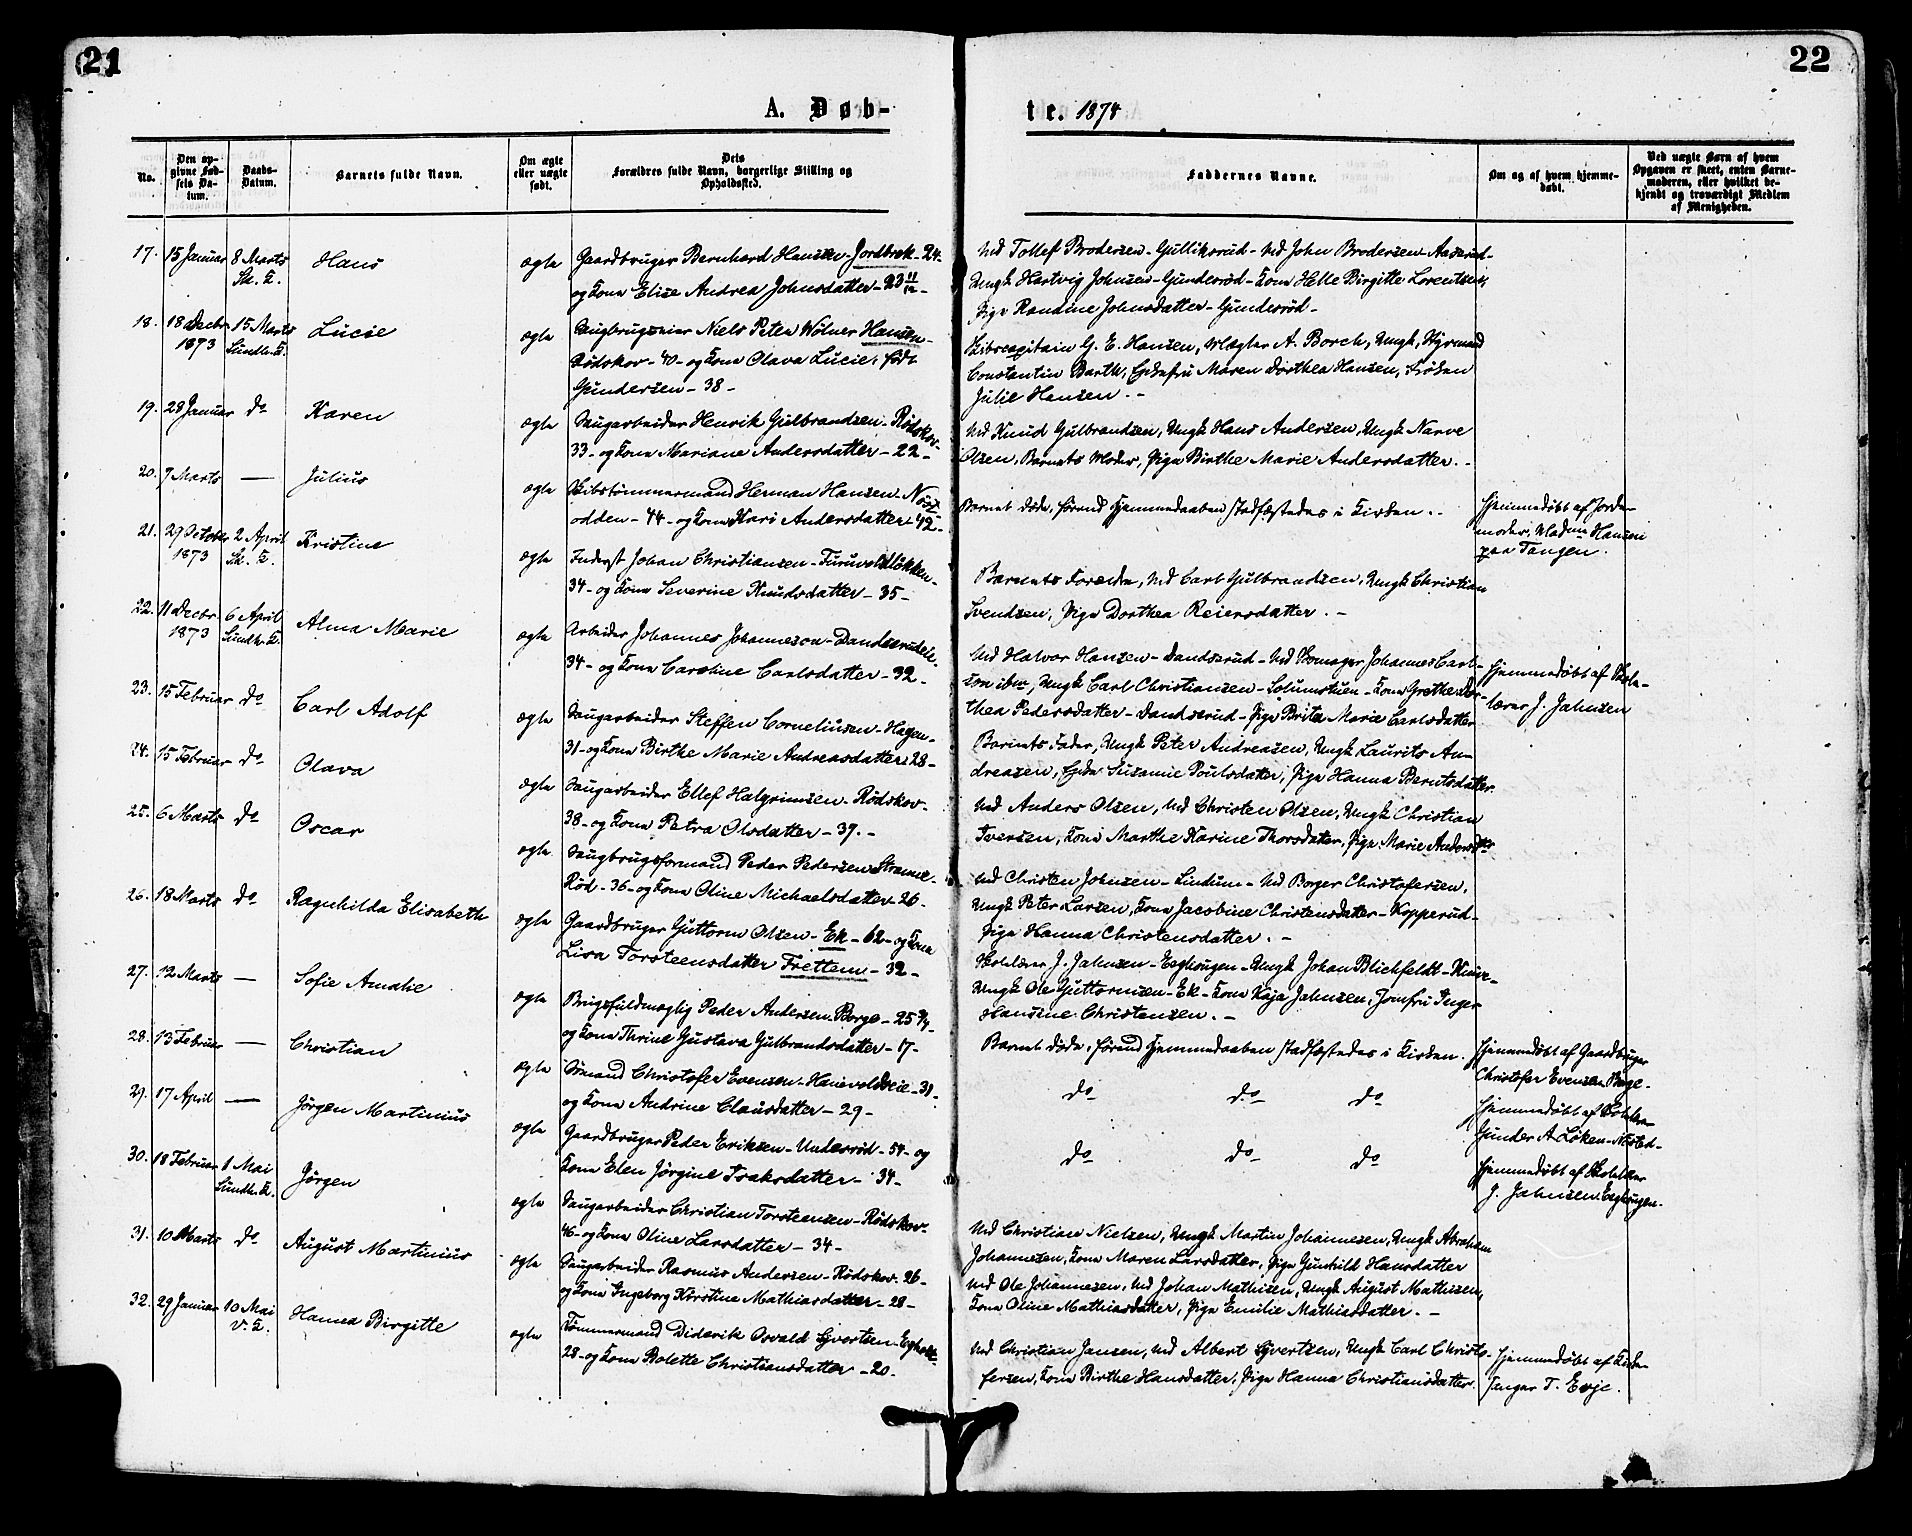 21
22
A. Døb-
te. 1874
No.
Den opgivne Fødsels Datum.
Daabs-Datum.
Barnets fulde Navn.
Om ægte eller uægte født.
Dets Forældres fulde Navn, borgerlige Stilling og Opholdssted.
Faddernes Navne.
Om og af hvem hjemmedøbt.
Ved uægte Børn af hvem Opgaven er skeet, enten Barnemoderen, eller hvilket bekjendt og troværdigt Medlem af Menigheden.
17. 15 Januar 8 Marts Hans ægte Gaardbruger Bernhard Hansen - Jordbrek - 24.
Sk. K. og Kone Elise Andrea Johnsdatter - 23 11/12 -
Ud Tollef Brodersen - Gulliksrud - Ud John Brodersen Aaserud -
Ungk Hartvig Johnsen - Gunderød - Kone Helle Birgitte Lorentsen,
Pige Randine Johnsdatter - Gunderød -
18. 18 Decbr 15 Marts Lucie ægte Saugbrugseier Niels Peter Wølner Hansen -
1873 Sundh. K. Rødskov - 40 - og Kone Olava Lucie, født
Gundersen - 38 -
Skibscapitain G. E. Hansen, Mægler A. Borch, Ungk, Styrmand
Constantin Barth, Enkefru Maren Dorthea Hansen, Frøken
Julie Hansen. -
19. 28 Januar do Karen ægte Saugarbeider Henrik Gulbrandsen - Rødskov -
33 - og Kone Mariane Andersdatter - 22 -
Ud Knud Gulbrandsen, Ungk Hans Andersen, Ungk Narve
Olsen, Barnets Moder, Pige Birthe Marie Andersdatter. -
20. 7 Marts — Julius ægte Skibstømmermand Herman Hansen - Nøst-
odden - 44 - og Kone Kari Andersdatter - 42 -
Barnet døde, førend Hjemmedaaben stadfæstedes i Kirken. -
Hjemmedøbt af Jorde-
moder, Madme Hansen
paa Tangen.
21. 29 October 2 April Kristine ægte Inderst Johan Christiansen - Furuvoldløkken -
1873 Sk. K. 34 - og Kone Severine Knudsdatter - 35 -
Barnets Forældre, Ud Carl Gulbrandsen, Ungk Christian
Svendsen, Pige Dorthea Reiersdatter. -
22. 11 Decbr 6 April Alma Marie ægte Arbeider Johannes Johannesen - Dandserudeie.
1873 Sundh. K. 34 - og Kone Caroline Carlsdatter - 32 -
Ud Halvor Hansen - Dandserud - Ud Skomager Johannes Carl-
sen ibm, Ungk Carl Christiansen - Solumstuen - Kone Grethe Dor-
thea Pedersdatter - Dandserud - Pige Brita Marie Carlsdatter
Hjemmedøbt af Skole-
lærer J. Jahnsen
23. 15 Februar do Carl Adolf ægte Saugarbeider Steffen Corneliusen - Hagen -
31 - og Kone Birthe Marie Andreasdatter - 28 -
Barnets Fader, Ungk Peter Andreasen, Ungk Laurits An-
dreasen, Enke Susanne Poulsdatter, Pige Hanna Berntsdatter.
24. 15 Februar do Olava ægte Saugarbeider Ellef Halgrimsen - Rødskov -
38 - og Kone Petra Olsdatter - 39. -
Ud Anders Olsen, Ud Christen Olsen, Ungk Christian
Iversen, Kone Marthe Karine Thorsdatter, Pige Marie Andersdtr
25. 6 Marts do Oscar ægte Saugbrugsformand Peder Pedersen Stramme-
Rød - 36 - og Kone Oline Michaelsdatter - 26 -
Ud Christen Johnsen - Lindum - Ud Borger Christofersen,
Ungk Peter Larsen, Kone Jacobine Christensdatter - Kopperud -
Pige Hanna Christensdatter. -
26. 18 Marts do Ragnhilda Elisabeth ægte Gaardbruger Guttorm Olsen - Ek - 62 - og Kone
Lisa Torsteensdatter Frettem - 32 -
Skolelærer J. Jahnsen - Eeghougen - Ungk Johan Blichfeldt - Knive -
Ungk Ole Guttormsen - Ek - Kone Kaja Jahnsen, Jomfru Inger
Hansine Christensen. -
27. 12 Marts — Sofie Amalie ægte Brugsfuldmægtig Peder Andersen - Borge - 25 3/4 -
og Kone Thrine Gustava Gulbrandsdatter - 17 -
Barnet døde, førend Hjemmedaaben stadfæstedes i Kirken.
Hjemmedøbt af Gaardbruger
Christofer Evensen Borge -
28. 13 Februar — Christian ægte Sømand Christofer Evensen - Hanevoldseie - 31 -
og Kone Andrine Clausdatter - 29 -
do do do
Hjemmedøbt af Skolelærer
Gunder A Løken - Nøsted -
29. 17 April — Jørgen Martinius ægte Gaardbruger Peder Eriksen - Underød - 54 - og
Kone Elen Jørgine Isaksdatter - 34 -
do do do
Hjemmedøbt af Skolelærer
J. Jahnsen Eeghougen -
30. 18 Februar 1 Mai Jørgen ægte Saugarbeider Christian Torsteensen - Rødskov -
Sundh. K. 46 - og Kone Oline Larsdatter - 34 -
Ud Christian Nielsen, Ungk Martin Johannesen, Ungk Abraham
Johannesen, Kone Maren Larsdatter, Pige Gunhild Hansdatter
31. 10 Marts do August Martinius ægte Saugarbeider Rasmus Andersen - Rødskov - 26 -
og Kone Ingeborg Kirstine Mathiasdatter - 28 -
Ud Ole Johannesen, Ud Johan Mathisen, Ungk August Mathisen,
Kone Oline Mathiasdatter, Pige Emilie Mathiasdatter. -
32. 29 Januar 10 Mai Hanna Birgitte ægte Tømmermand Diderik Osvald Syvertsen -
V. K. 28 - og Kone Bolette Christiansdatter - 20 -
Ud Christian Jansen, Ud Albert Syvertsen, Ungk Carl Christo-
fersen, Kone Birthe Hansdatter, Pige Hanna Christiansdatter.
Hjemmedøbt af Kirke-
sanger T. Evje.